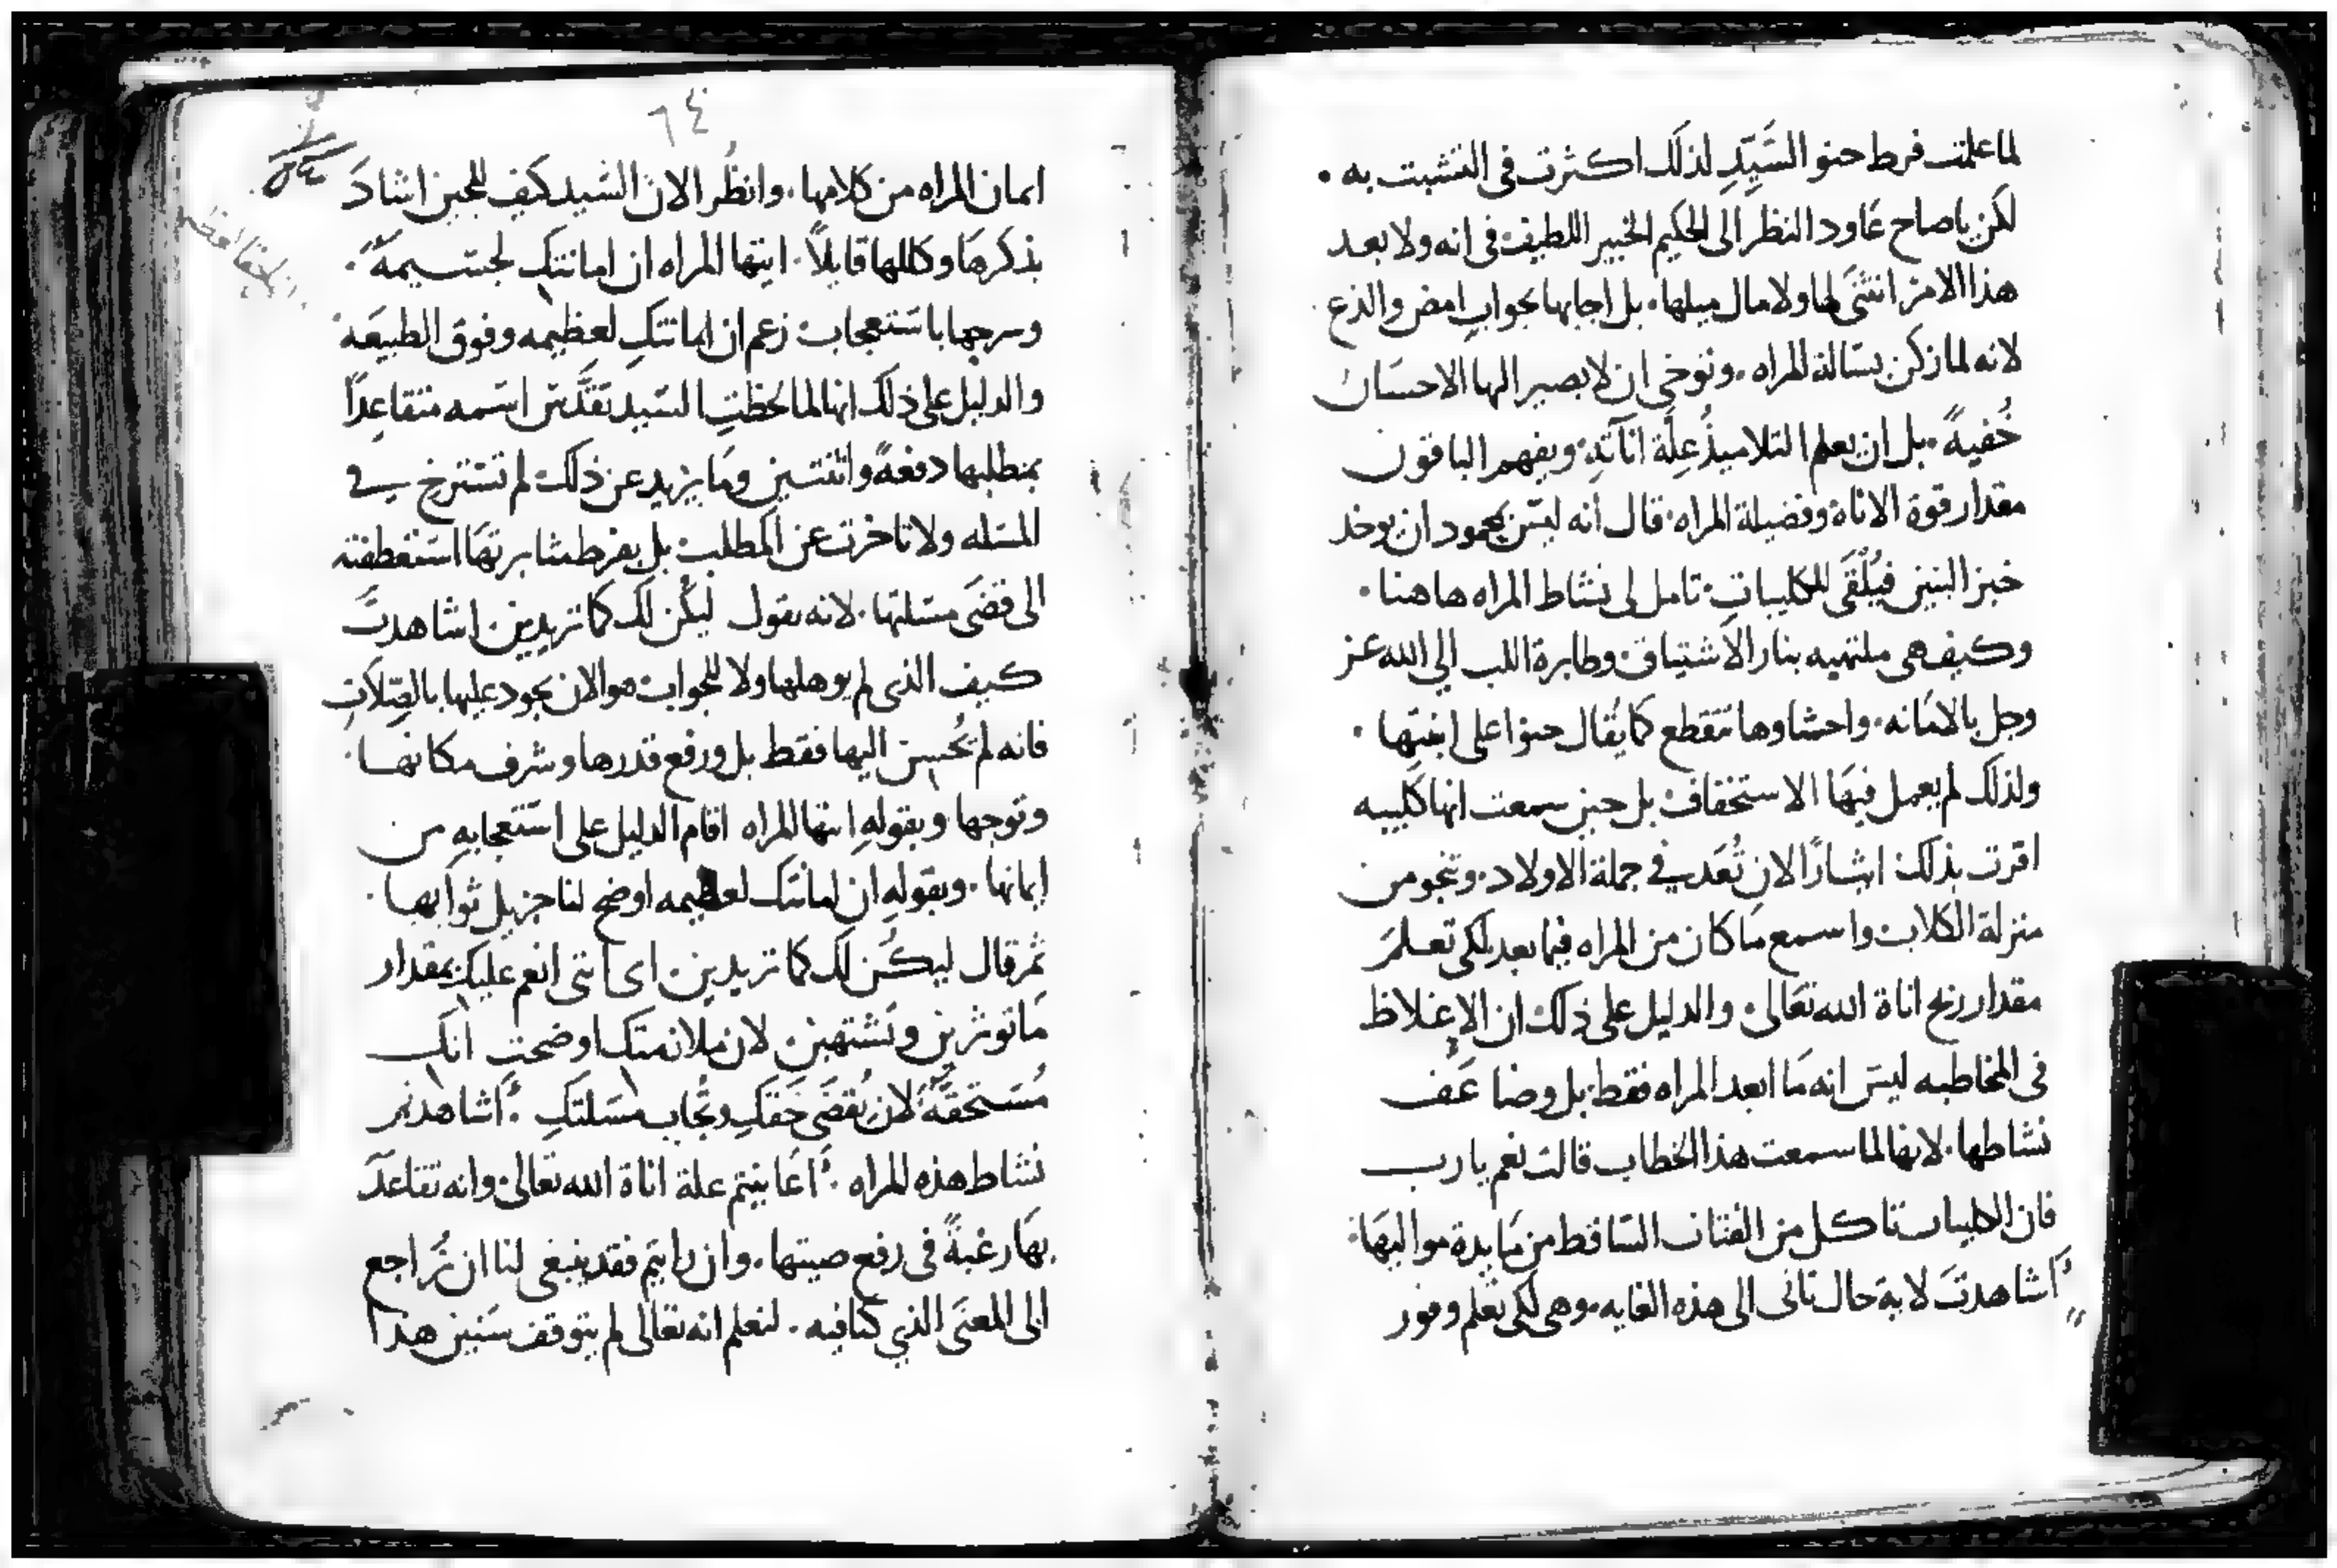 لما علمت فرط حنو السَّيِّدِ لذلك اكثرت في التشبت به ٠
لكن ياصاح عاود النظر الى الحكيم الخبير اللطيف في انه ولا بعد
هذا الامر انثنَى لها ولا مال ميلها ٠ بل اجابها بجوابٍ امض والذع
لانه لما زكن بسَالة المراه ٠ وتوخى ان لا يصير اليها الاحسَان
خُفيهً ٠ بل ان يعلم التلاميذُ عِلَّة اناتَه ويفهم الباقون
مقدار قوة الاناة وفضيلة المراه ٠ قال انه ليسَن بمحمود ان يوخد
خبز البنين فيُلْقَى للكليبات ٠ تامل لى نشاط المراه هاهنا ٠
وكيف هى ملتهبه بنار الاشتياق وطايرة اللب الي الله عز
وجل بالامَانه ٠ واحشاوها تتقطع كما يُقال حنوا على ابنتها ٠
ولذلك لم يعمل فيهَا الاستخفاف بل حين سمعت انها كليبه
اقرت بذلك ايثارًا لان تُعَد في جملة الاولاد ٠ وتنجو من
منزلة الكلاب واسمع مَا كان من المراه فيما بعد لكى تعلمَ
مقدار ربح اناة الله تعَالى ٠ والدليل على ذلك ان الاغلاظ
في المخاطبه ليسَ انه مَا ابعد المراه فقط بل وضاعَف
نشاطها ٠ لانها لما سمعت هذا الخطاب قالت نعم يا رب
فان الكليبات تاكل من الفتات السَاقط من مَايدة مواليهَا ٠
اشاهدتَ لاية حال تانى الى هذه الغايه ٠ وهى لكى تعلم وفور
٦٤
ايمان المراه من كلامها ٠ وانظُر الان السَيد كيف للحين اشادَ
بذكرهَا وكللها قايلاً ٠ ايتها المراه ان امانتكِ لجسَيمهً ٠
باسَتعجاب زعم ان امانتكِ لعظيمه وفوق الطبيعَه
والدليل على ذلك انها لما لحظتِ السَيد اسَمه متقاعِدًا
بمطلبها دفعهً واثنتين ومَا يزيد عن ذلك لم تسَترخ في
المسَله ولا تاخرت عن المطلب بل بفرط مثابرتهَا اسَتعطفته
الى قضَى مسَلتها ٠ لانه يقول ليكُن لكِ كما تريدين اشاهدتَ
كيف الذى لم يوهلها ولا للجواب هو الان يجود عليها بالصِّلاَتِ
فانه لم يُحسِن اليها فقط بل ورفع قدرها وشرف مكانها ٠
وتوجها وبقولهِ ايتها المراه اقام الدليل على اسَتعجابهِ من
ايمانها ٠ وبقولهِ ان امانتك لعظيمه اوضح لنا جزيل ثوابها ٠
ثم قال ليكُن لكِ كما تريدين ٠ اى اننى انعم عليك بمقدار
مَا توثرين وتشتهين ٠ لان ملازمتكِ اوضحتِ انكِ
مُسَتحقَّهً لان يُقضَى حَقكِ وتُجاب مسَلتكِ ٠ اشاهدتم
نشاط هذه المراه ٠ اعَاينتم علة اناة الله تعالى ٠ وانه تقاعدَ
بهَا رغبهً في رفع صيتها ٠ وان رايتم فقد ينبغى لنا ان نُراجع
الى المعنَى الذي كنا فيه ٠ لنعلم انه تعَالى لم يتوقف سَنين هذا